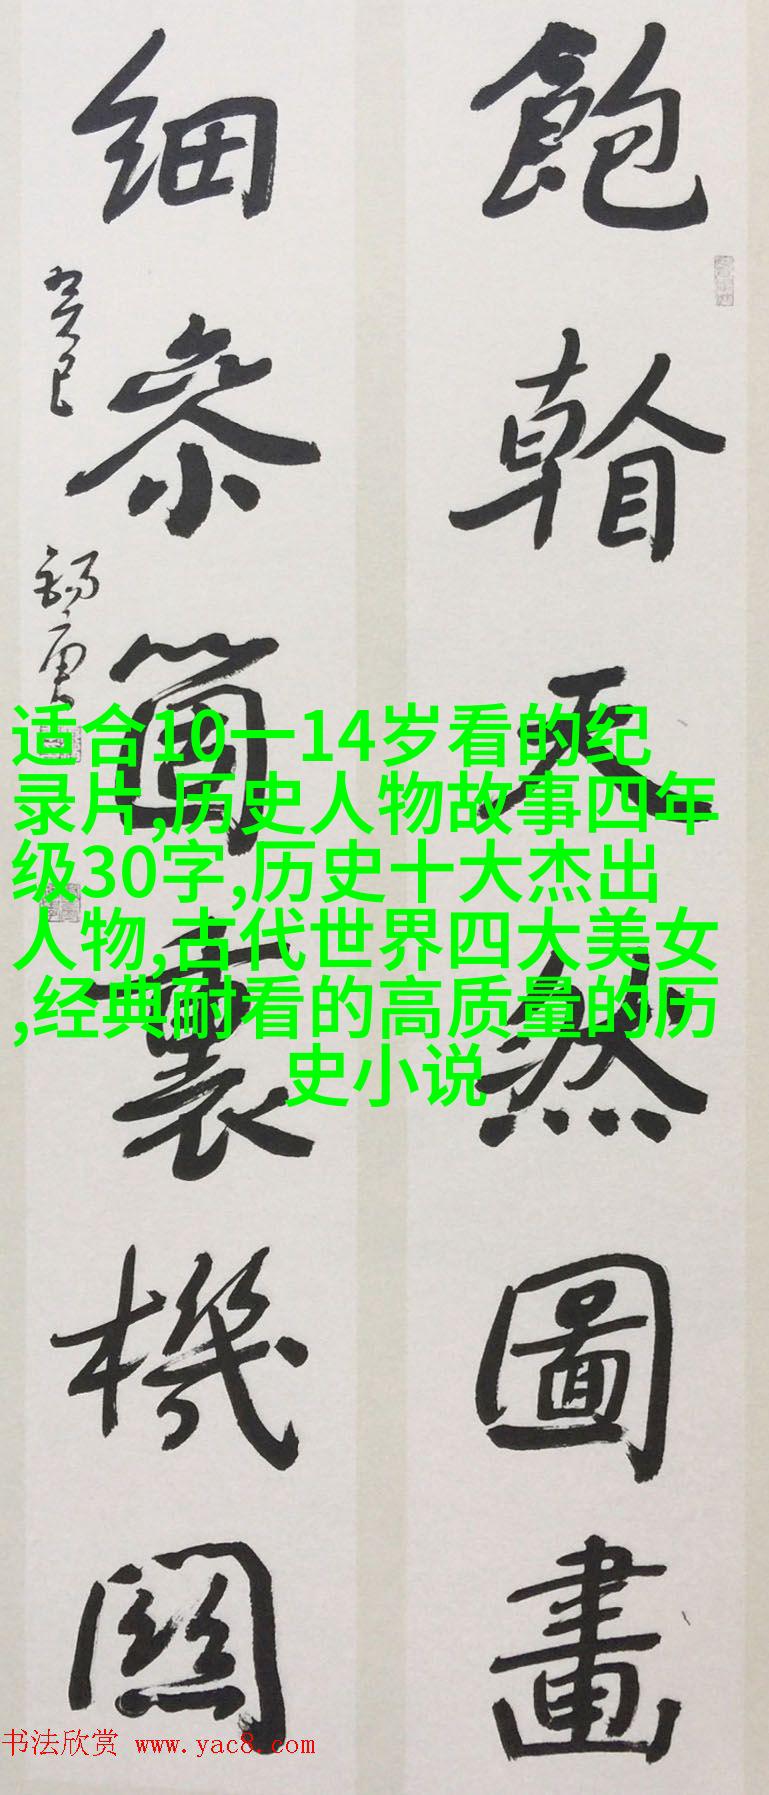 飽天然圖畫
細參箇裏機關
癸巳
适合10一14岁看的纪
录片,历史人物故事四年
级30字,历史十大杰出
人物,古代世界四大美女
,经典耐看的高质量的历
史小说
书法欣赏 www.yac8.com